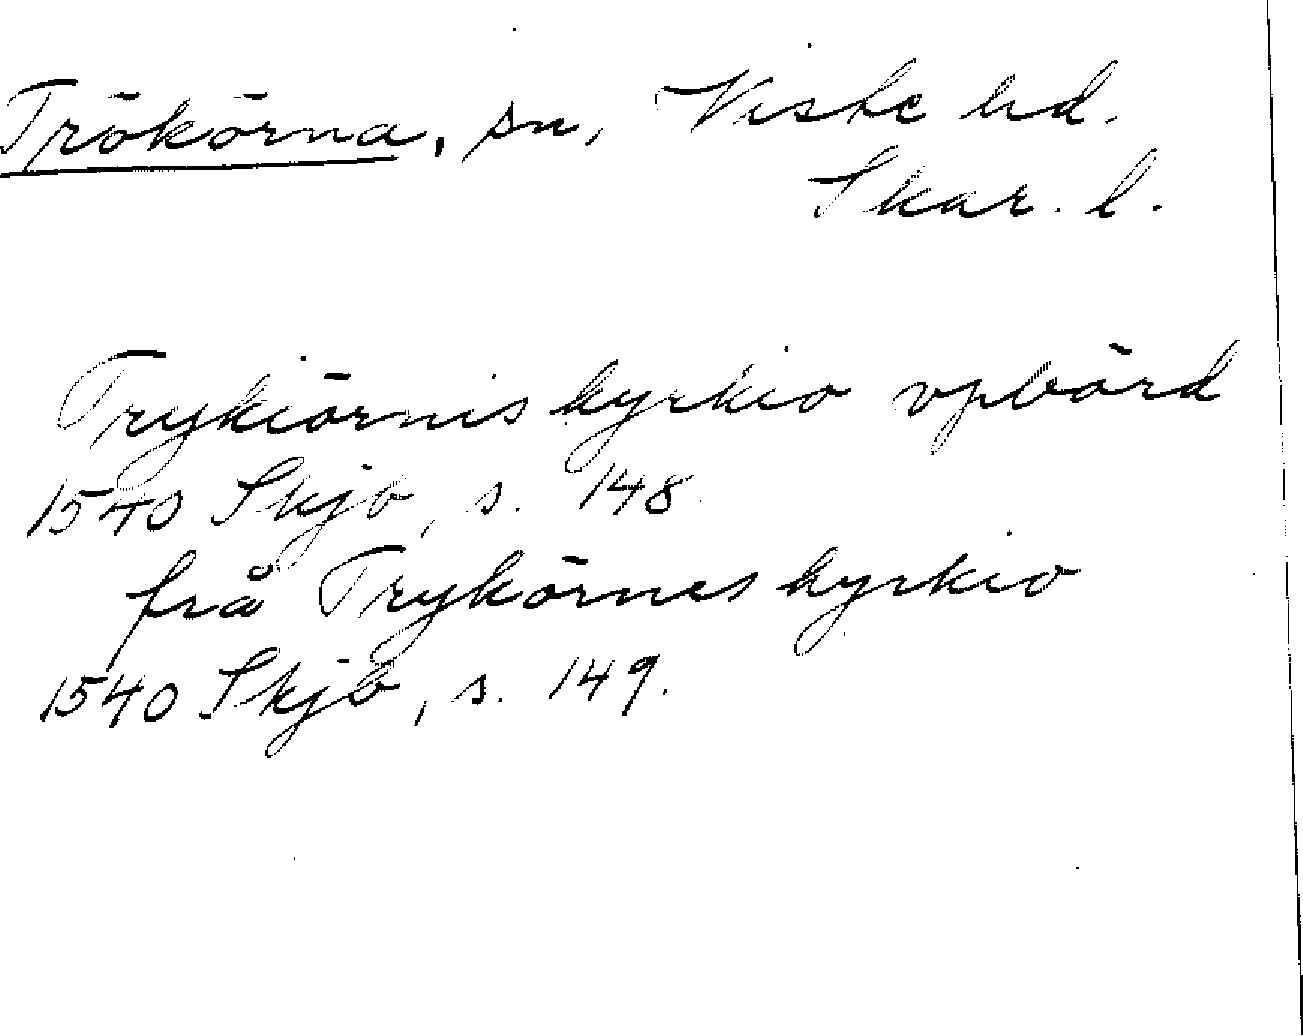 Trökörna, sn, Viste hd.
Skar. l.
Trykiörnis kyrkio vpbörd
1540 Skjb, s. 148
frå Trykörnes kyrkio
1540 Skjb, s. 149.